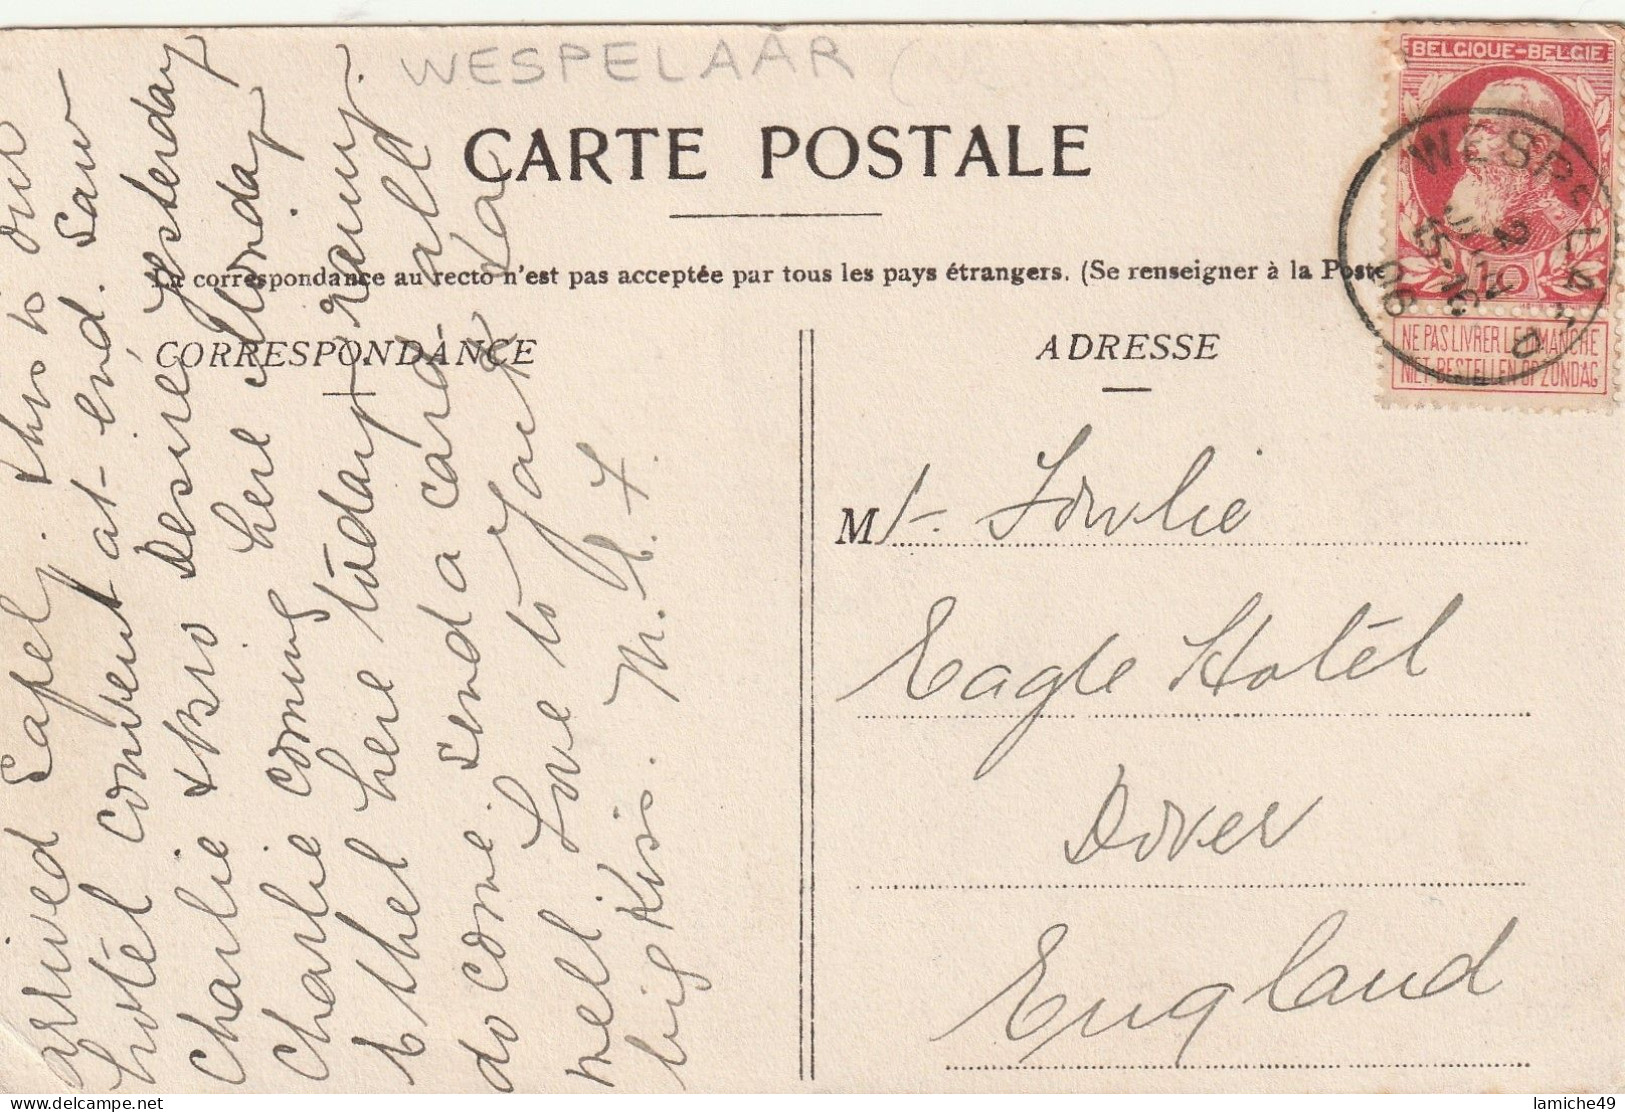 WESPELAAR
CARTE POSTALE
La correspondance au recto n'est pas acceptée par tous les pays étrangers. (Se renseigner à la Poste
CORRESPONDANCE
ADRESSE
BELGIQUE-BELGIE
10
NE PAS LIVRER LE DIMANCHE
NIET BESTELLEN OP ZONDAG
WESPELAER
2
15-16
06
arrived safely. this is our
hotel convent at end. saw
Charlie & Desiré yesterday
here Monday
Charlie coming here today
Ethel here today rainy.
do come. send a card all
well. Love to Jack
big Kiss. M. C. F.
Mr. Fowlie
Eagle Hotel
Dover
England
lamiche49